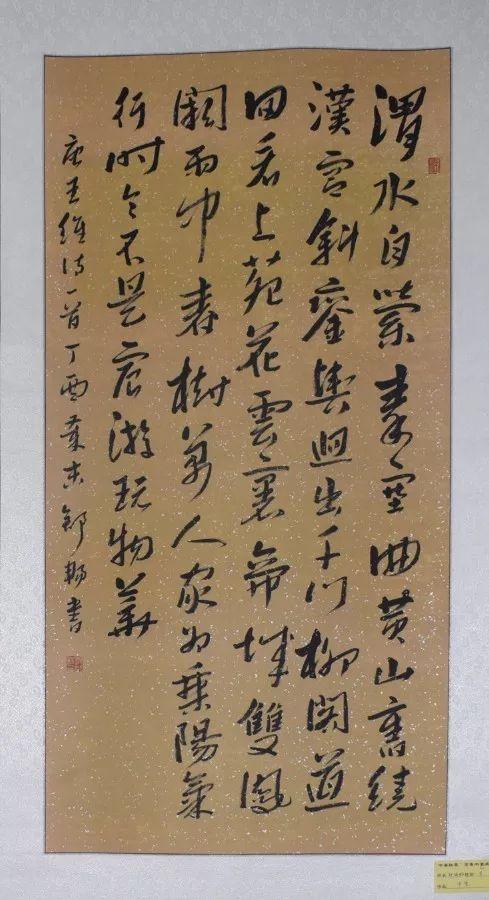 渭水自縈秦塞曲黄山舊繞
漢宫斜鑾輿迥出千门柳閣道
回看上苑花雲裏帝城雙鳳
闕雨中春樹萬人家为乘陽氣
行时令不是宸游玩物華
唐王維诗一首丁酉書